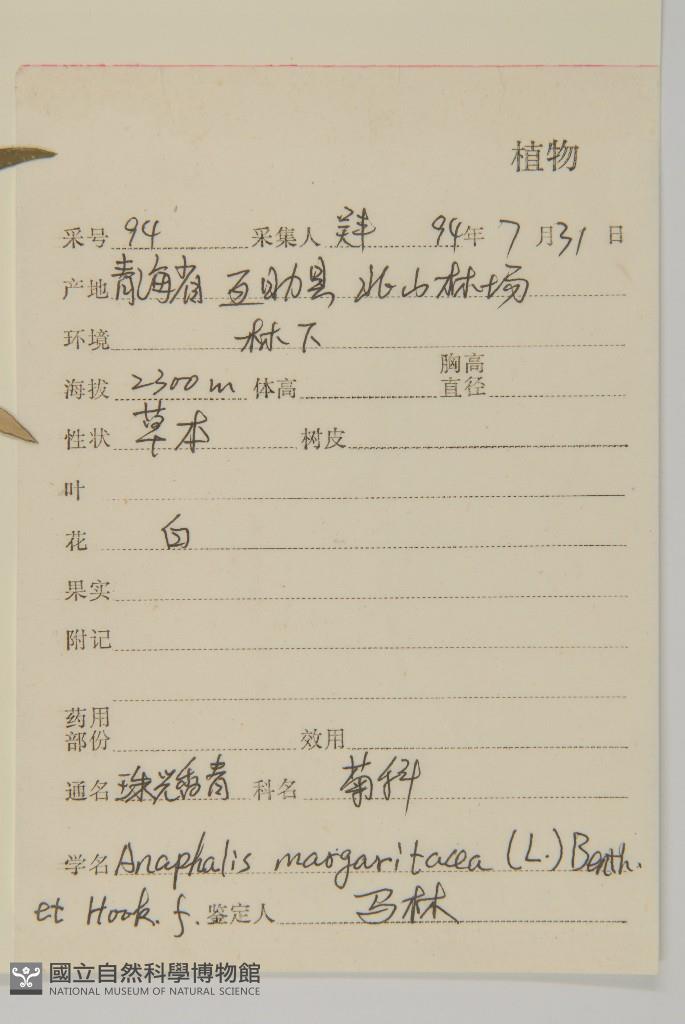 植物
采号 94 采集人 吴丰 94年 7月31日
产地 青海省 互助县 北山林场
环境 林下
海拔 2300m 体高 胸高直径
性状 草本 树皮
叶
花 白
果实
附记
药用部份 效用
通名 珠光香青 科名 菊科
学名 Anaphalis margaritacea (L.) Benth.
et Hook. f. 鉴定人 马林
國立自然科學博物館
NATIONAL MUSEUM OF NATURAL SCIENCE